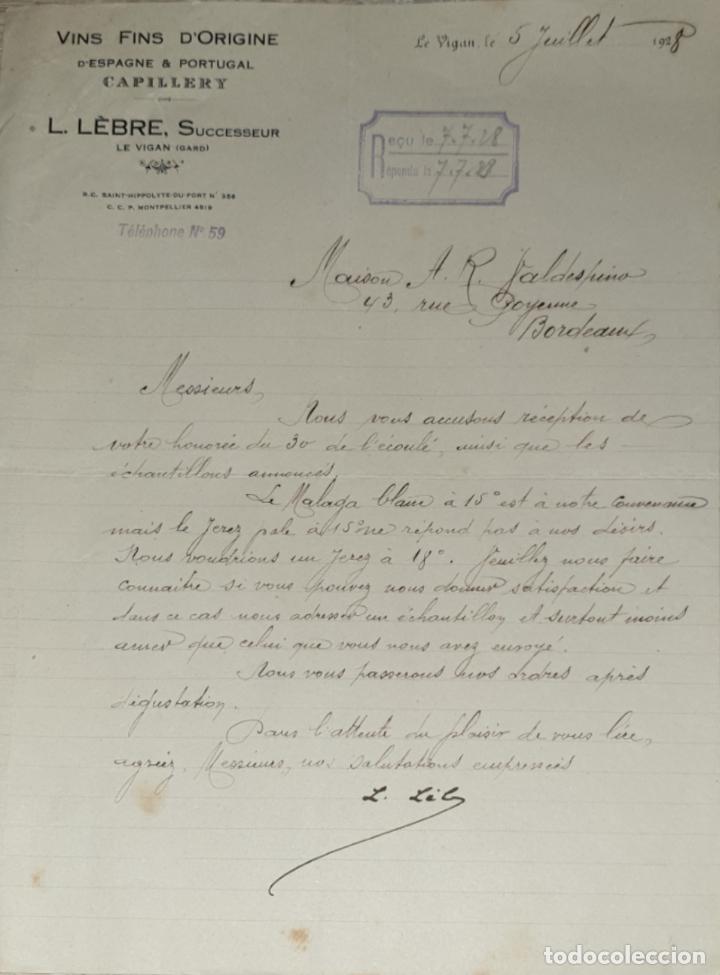 VINS FINS D'ORIGINE
D'ESPAGNE & PORTUGAL
CAPILLERY
L. LÈBRE, SUCCESSEUR
LE VIGAN (GARD)
R.C. SAINT-HIPPOLYTE-DU-FORT N° 356
C.C.P. MONTPELLIER 4519
Téléphone N° 59
Le Vigan, le 5 Juillet 1928
Reçu le 7.7.28
Répondu le 7.7.28
Maison A. R. Valdespino
43, rue Goyenne
Bordeaux
Messieurs,
Nous vous accusons réception de
votre honorée du 30 de l'écoulé, ainsi que les
échantillons annoncés.
Le Malaga blanc à 15° est à notre convenance
mais le Jerez pale à 15° ne répond pas à nos désirs.
Nous voudrions un Jerez à 18°. Veuillez nous faire
connaitre si vous pouvez nous donner satisfaction et
dans ce cas nous adresser un échantillon et surtout moins
amer que celui que vous nous avez envoyé.
Nous vous passerons nos ordres après
dégustation.
Dans l'attente du plaisir de vous lire,
agréez, Messieurs, nos salutations empressées
L. Lèbre
todocoleccion